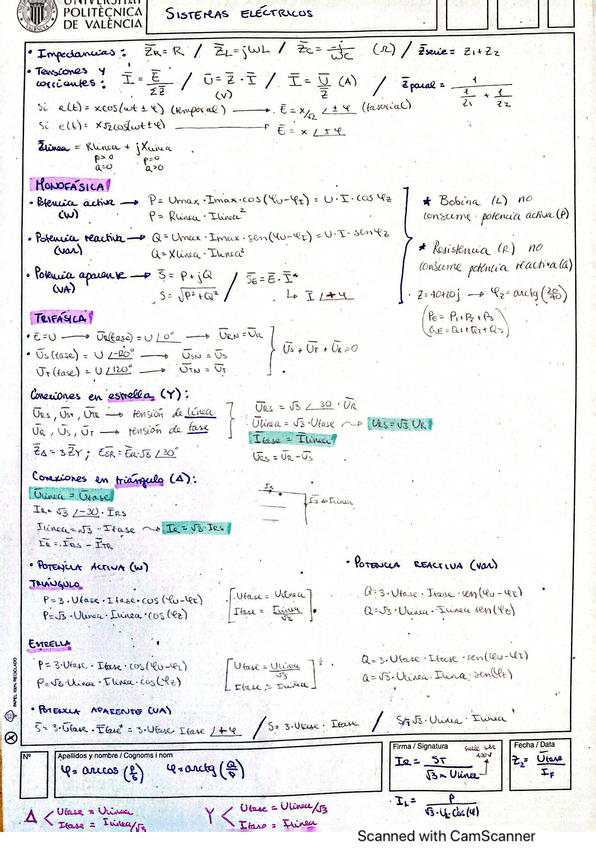 UNIVERSITAT
POLITÈCNICA
DE VALÈNCIA
SISTEMAS ELÉCTRICOS
• Impedancias: Z̄R = R / Z̄L = jωL / Z̄C = -j/ωC (Ω) / Z̄serie = Z1+Z2
• Tensiones y corrientes: Ī = Ē/ΣZ̄ / Ū = Z̄ · Ī (V) / Ī = Ū/Z̄ (A) / Z̄paral = 1/(1/Z1 + 1/Z2)
Si e(t) = xcos(ωt ± φ) (temporal) → Ē = x/√2 ∠±φ (fasorial)
Si e(t) = x√2cos(ωt±φ) → Ē = x ∠±φ
Z̄línea = Rlínea + jXlínea
p>0 p=0
q=0 q>0
MONOFÁSICA
• Potencia activa (W) → P = Umax · Imax · cos(φu-φI) = U · I · cos φz
P = Rlínea · Ilínea²
• Potencia reactiva (var) → Q = Umax · Imax · sen(φu-φI) = U · I · sen φz
Q = Xlínea · Ilínea²
• Potencia aparente (VA) → S̄ = P + jQ / S̄E = Ē · Ī*
S = √P²+Q² ↳ I ∠+φ
★ Bobina (L) no
consume potencia activa (P)
★ Resistencia (R) no
consume potencia reactiva (Q)
• Z = 40+20j → φz = arctg(20/40)
(PE = P1+P2+P3
QE = Q1+Q2+Q3)
TRIFÁSICA
• E=U → ŪR(fase) = U ∠0° → ŪRN = ŪR
• ŪS(fase) = U ∠-120° → ŪSN = ŪS
ŪT(fase) = U ∠120° → ŪTN = ŪT
ŪS + ŪT + ŪR = 0
Conexiones en estrella (Y):
ŪRS, ŪST, ŪTR → tensión de línea
ŪR, ŪS, ŪT → tensión de fase
Z̄Δ = 3Z̄Y ; ĒSR = ĒR·√3 ∠30°
ŪRS = √3 ∠30 · ŪR
Ulínea = √3 · Ufase ⇝ URS = √3 UR
Ifase = Ilínea
ŪRS = ŪR - ŪS
Conexiones en triángulo (Δ):
Ulínea = Ufase
IR = √3 ∠-30 · ĪRS
Ilínea = √3 · Ifase ⇝ IR = √3 · IRS
ĪR = ĪRS - ĪTR
IR
• POTENCIA ACTIVA (W)
• POTENCIA REACTIVA (var)
TRIÁNGULO
P = 3 · Ufase · Ifase · cos(φu-φI)
P = √3 · Ulínea · Ilínea cos(φz)
Ufase = Ulínea
Ifase = Ilínea/√3
Q = 3 · Ufase · Ifase · sen(φu-φI)
Q = √3 · Ulínea · Ilínea sen(φz)
ESTRELLA
P = 3 · Ufase · Ifase · cos(φu-φI)
P = √3 · Ulínea · Ilínea cos(φz)
Ufase = Ulínea/√3
Ifase = Ilínea
Q = 3 · Ufase · Ifase · sen(φu-φI)
Q = √3 · Ulínea · Ilínea · sen(φz)
• POTENCIA APARENTE (VA)
S̄ = 3 · Ūfase · Īfase* = 3 · Ufase · Ifase ∠+φ / S = 3 · Ufase · Ifase / S = √3 · Ulínea · Ilínea
PAPEL 100% RECICLADO
Nº
Apellidos y nombre / Cognoms i nom
φ = arccos(P/S) φ = arctg(Q/P)
Firma / Signatura
IR = ST/(√3 · Ulínea)
400V
Fecha / Data
Z2 = Ufase/IF
Δ < Ufase = Ulínea
Ifase = Ilínea/√3
Y < Ufase = Ulínea/√3
Ifase = Ilínea
IL = P/(√3 · UL cos(φ))
Scanned with CamScanner